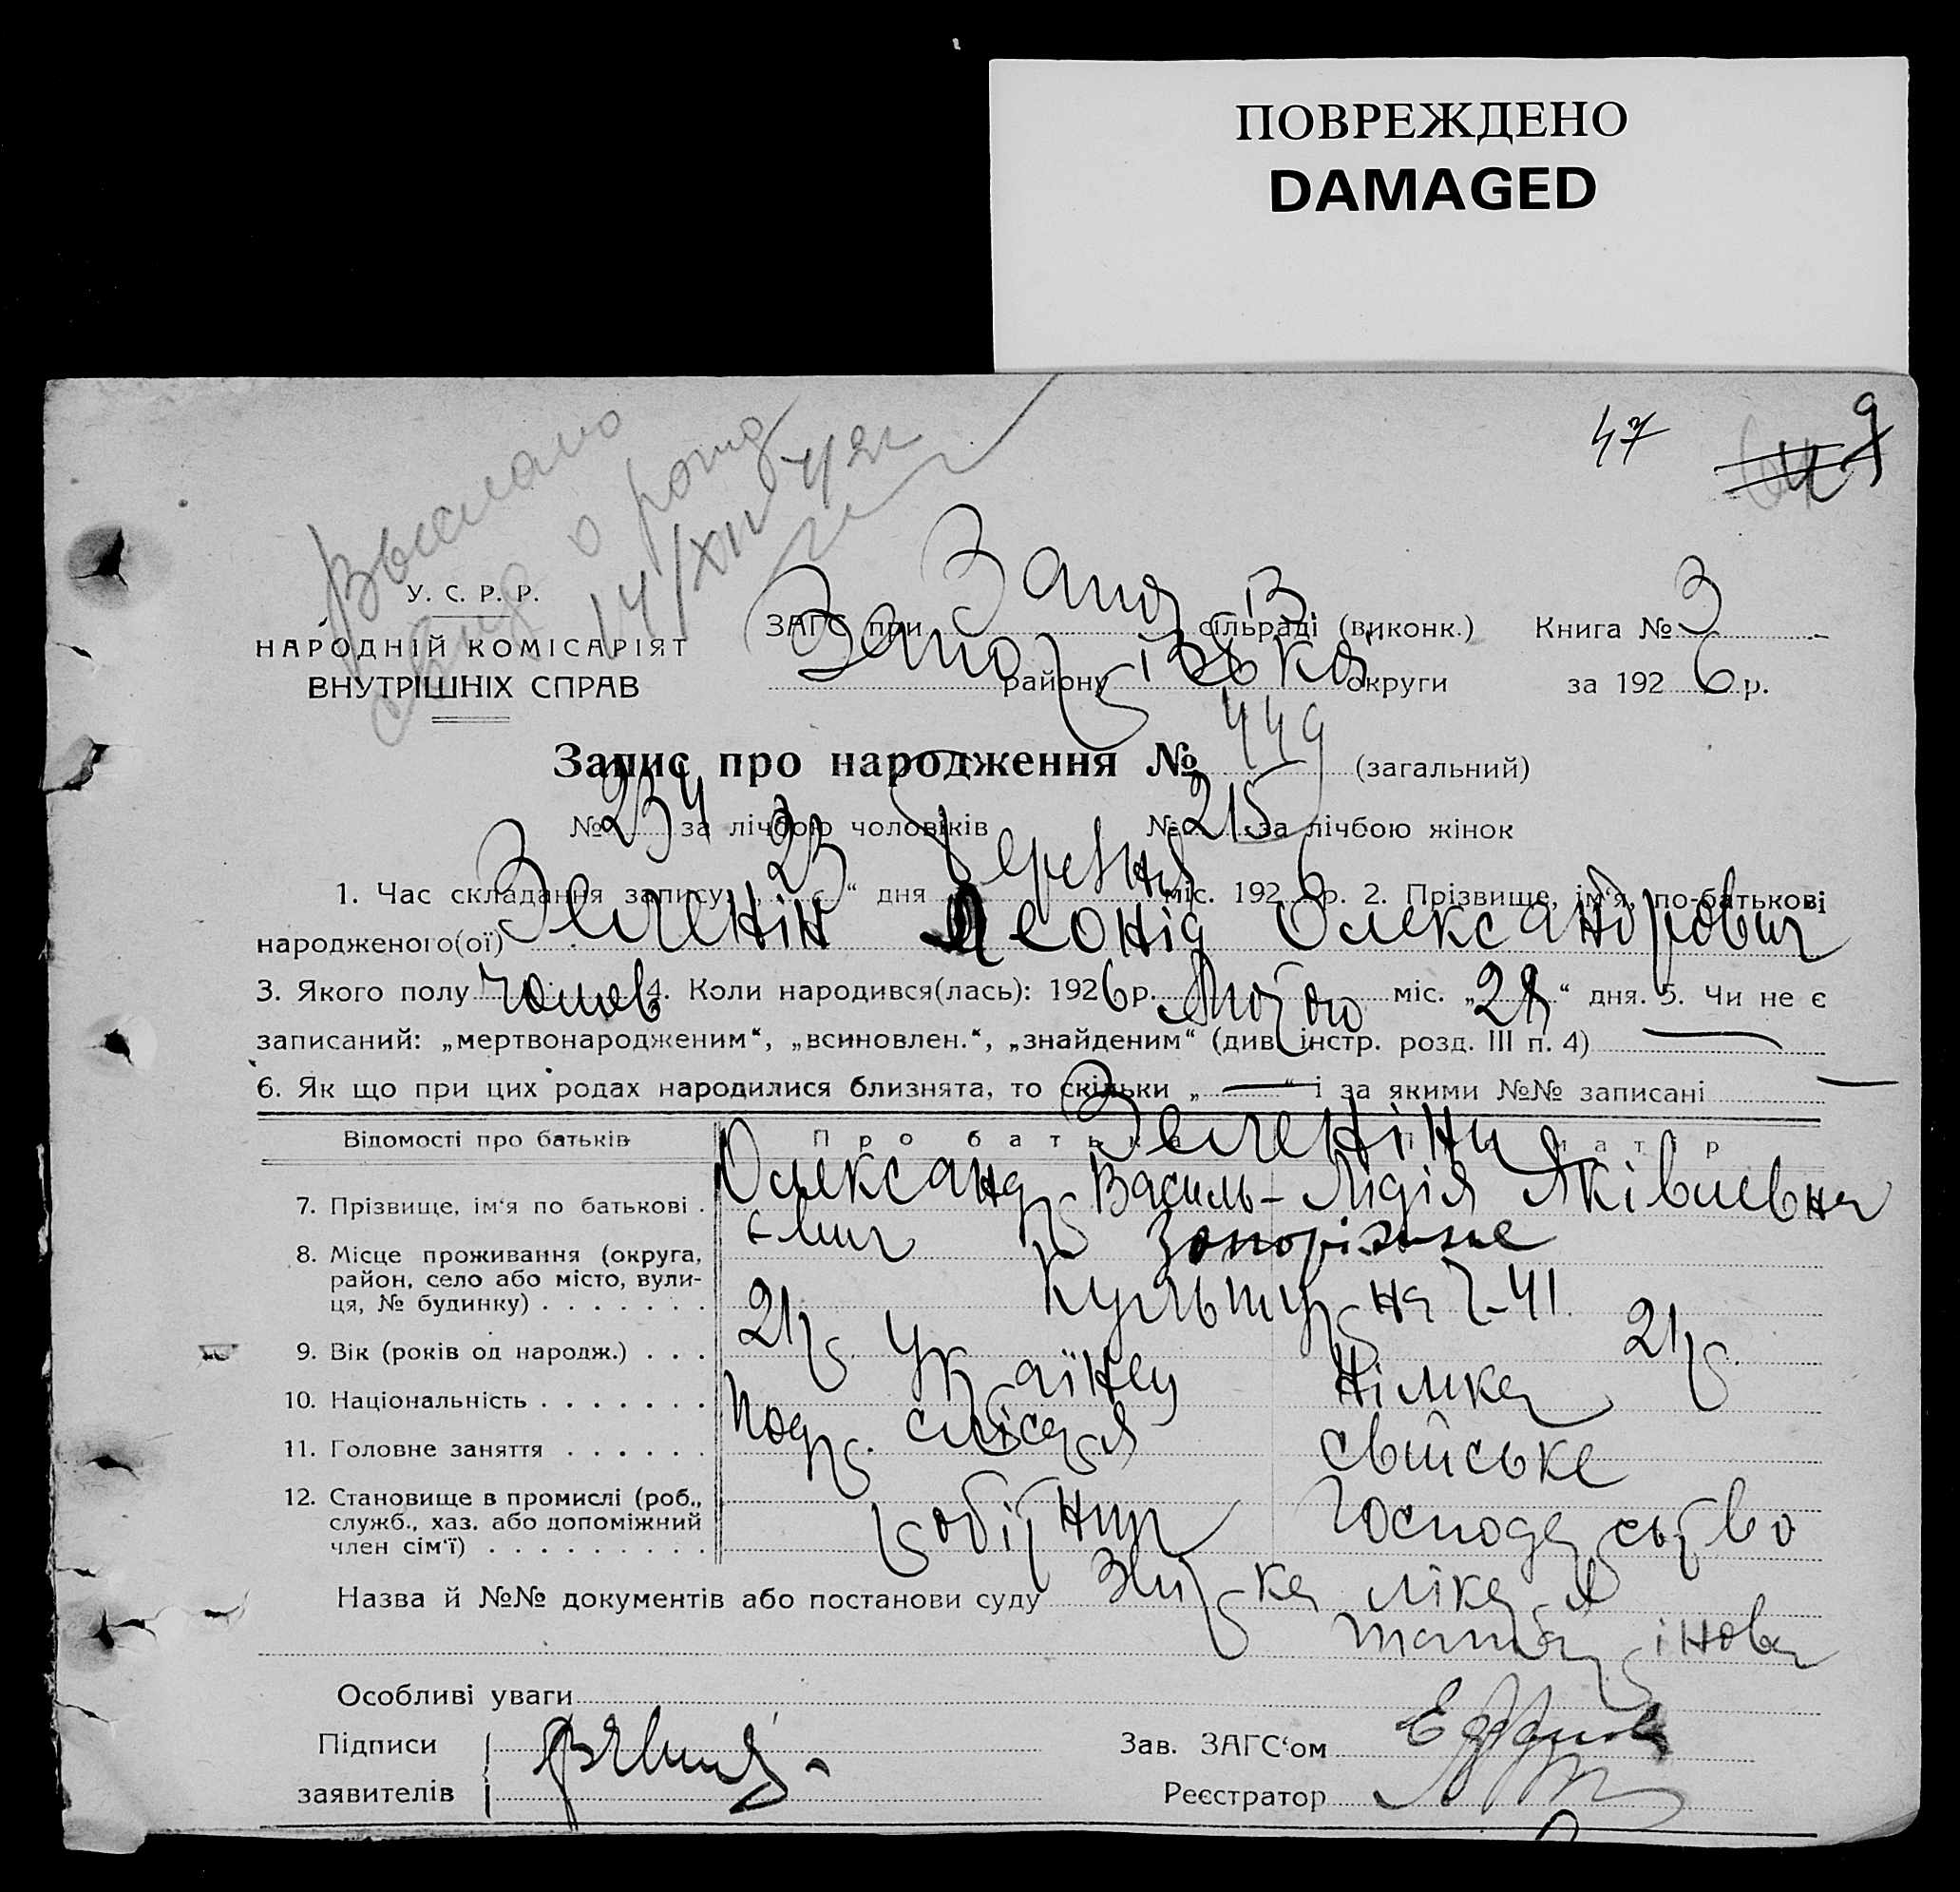 ПОВРЕЖДЕНО
DAMAGED
47
9
Выслано
о рожд
14/XII
У. С. Р. Р.
НАРОДНІЙ КОМІСАРІЯТ
ВНУТРІШНІХ СПРАВ
ЗАГС при Запоріз. сільраді (виконк.) Книга № 3
району округи за 192 6 р.
Запис про народження № 449 (загальний)
№ 234 за лічбою чоловіків № 215 за лічбою жінок
1. Час складання запису „ 23 “ дня березня міс. 192 6 р. 2. Прізвище, ім'я, по-батькові
народженого(ої) Зеленін Леонід Олександрович
3. Якого полу чолов 4. Коли народився(лась): 1926 р. Лютого міс. „ 28 “ дня. 5. Чи не є
записаний: „мертвонародженим“, „всиновлен.“, „знайденим“ (див. інстр. розд. III п. 4) —
6. Як що при цих родах народилися близнята, то скільки „ — “ і за якими №№ записані —
Відомості про батьків Про батька Зеленіни матір
7. Прізвище, ім'я по батькові . Олександр Василь- Лідія Яківлевна
8. Місце проживання (округа, Запоріжжє
район, село або місто, вули-
ця, № будинку) . . . . . . . Культурна 7-41
9. Вік (років од народж.) . . . 21 р. 21 р.
10. Національність . . . . . . . Українец Німка
11. Головне заняття . . . . . . свійське
12. Становище в промислі (роб., робітник господарство
служб., хаз. або допоміжний
член сім'ї) . . . . . . . . .
Назва й №№ документів або постанови суду лікаря
Особливі уваги
Підписи Зав. ЗАГС‘ом
заявителів Реєстратор